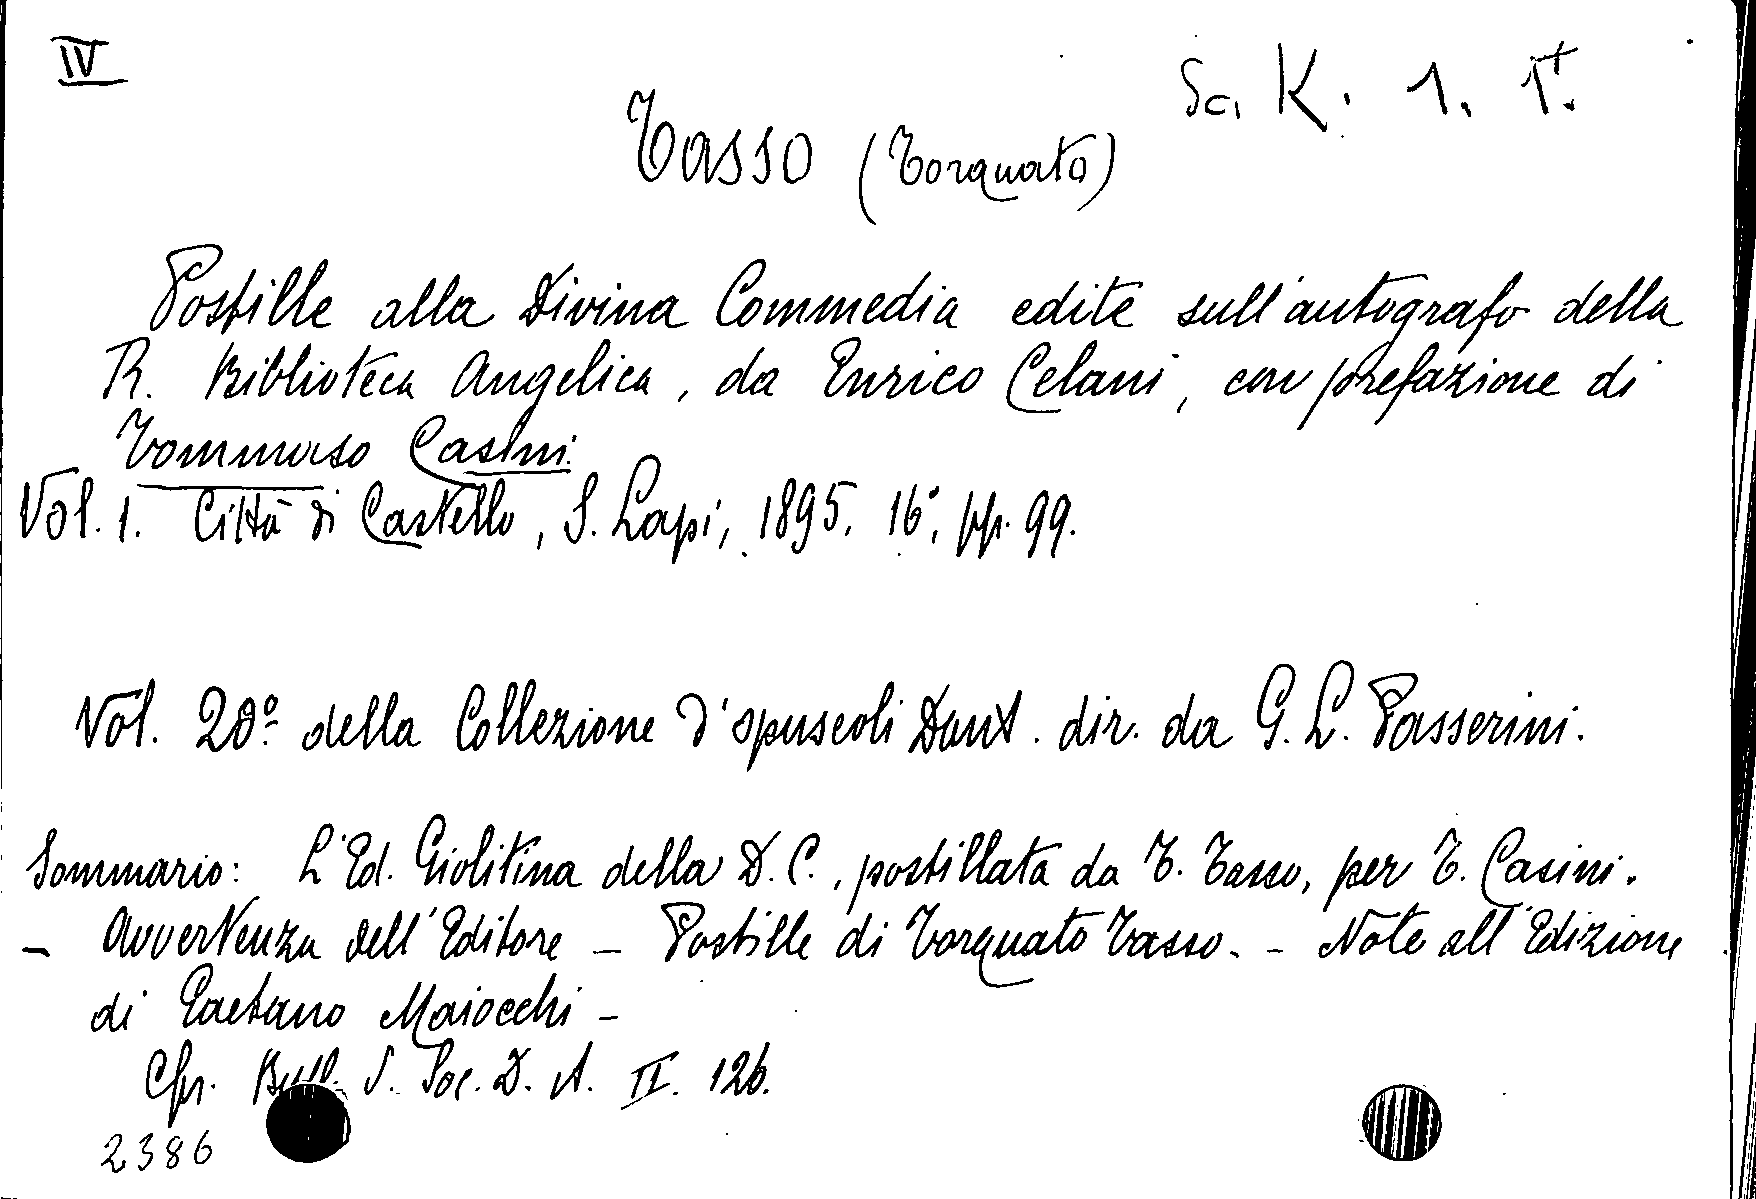 IV
Sc. K. 1. 1†.
Tasso (Torquato)
Postille alla Divina Commedia edite sull'autografo della
R. Biblioteca Angelica, da Enrico Celani, con prefazione di
Tommaso Casini.
Vol. 1. Città di Castello, S. Lapi, 1895. 16°, pp. 99.
Vol. 20º della Collezione d'opuscoli Dant. dir. da G. L. Passerini.
Sommario: L'Ed. Giolitina della D. C., postillata da T. Tasso, per T. Casini.
- Avvertenza dell'Editore - Postille di Torquato Tasso. - Note all'Edizione
di Gaetano Maiocchi -
Cfr. Bull. S. Soc. D. A. II. 126.
2386